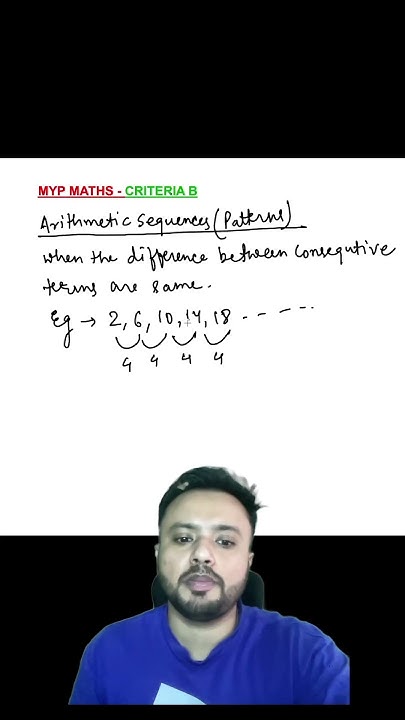 MYP MATHS - CRITERIA B
Arithmetic sequences (Patterns)
when the difference between consequtive
terms are same.
Eg → 2, 6, 10, 14, 18 - - - - - -
4 4 4 4